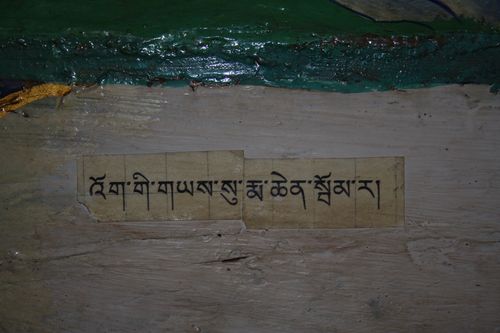 འོག་གི་གཡས་སུ་རྨ་ཆེན་སྤོམ་ར།